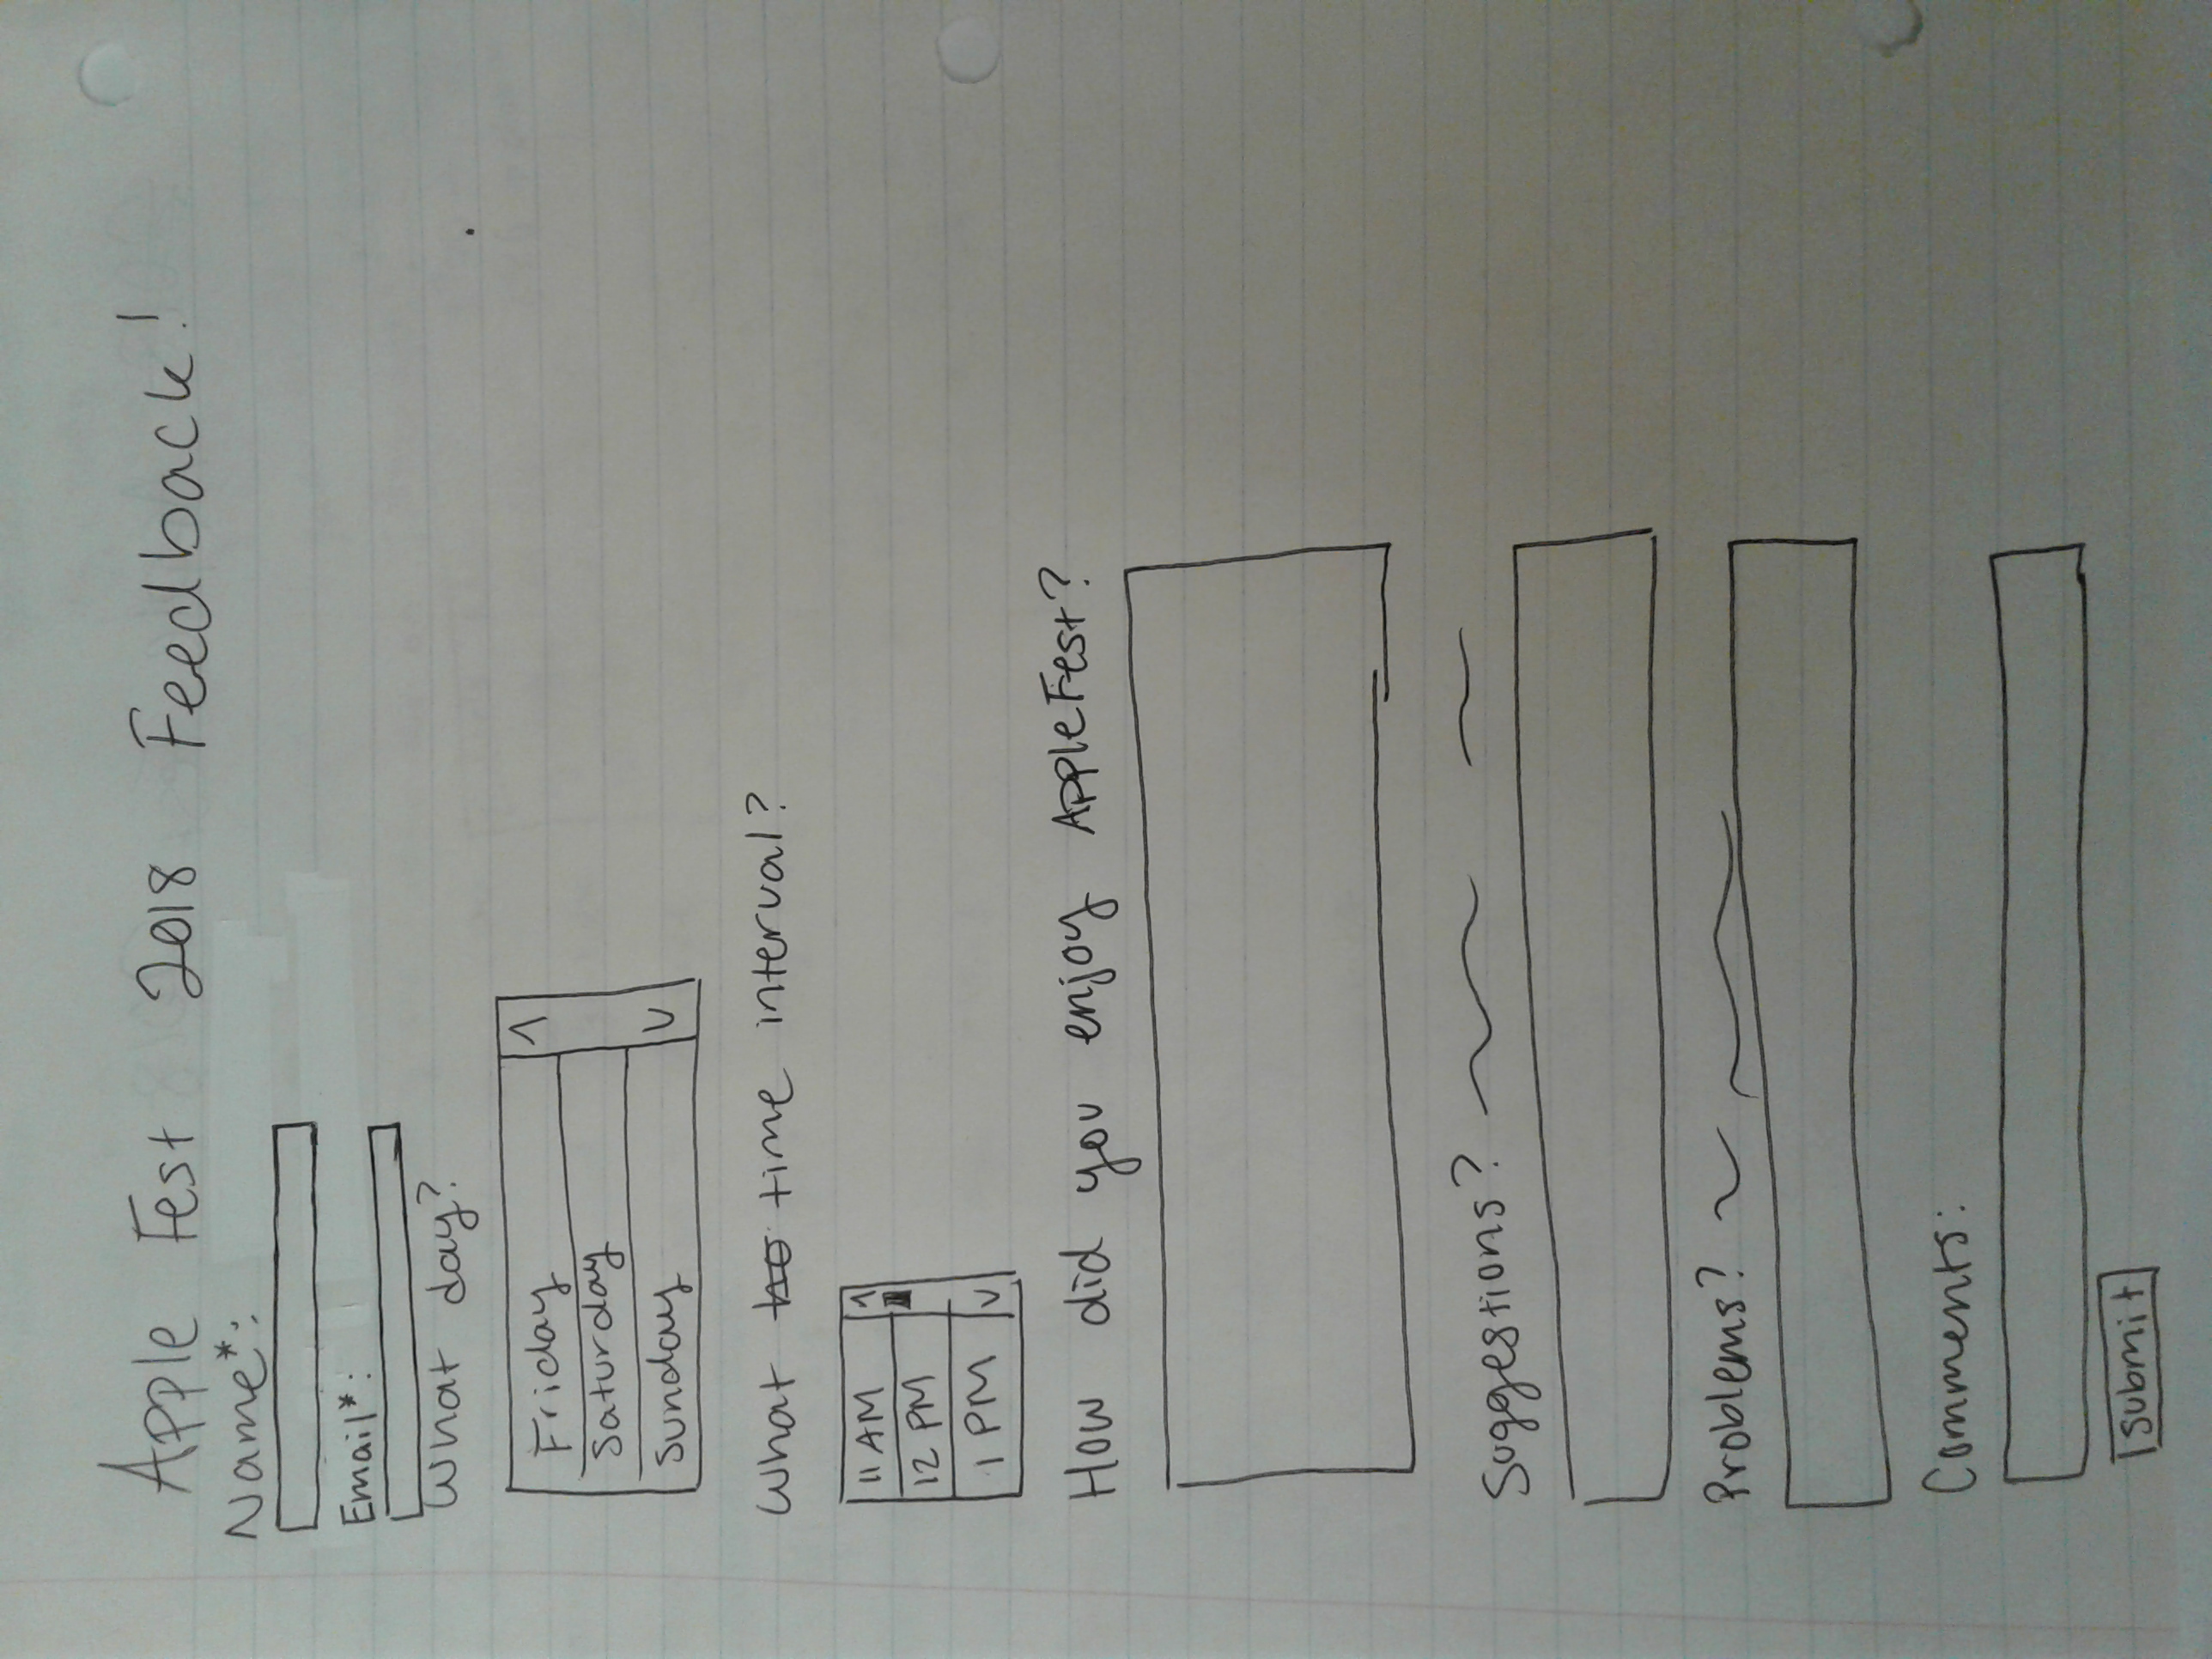 Apple Fest 2018 Feedback!
Name*:
Email*:
What day?
Friday
Saturday
Sunday
What time interval?
11 AM
12 PM
1 PM
How did you enjoy AppleFest?
Suggestions?
Problems?
Comments:
Submit